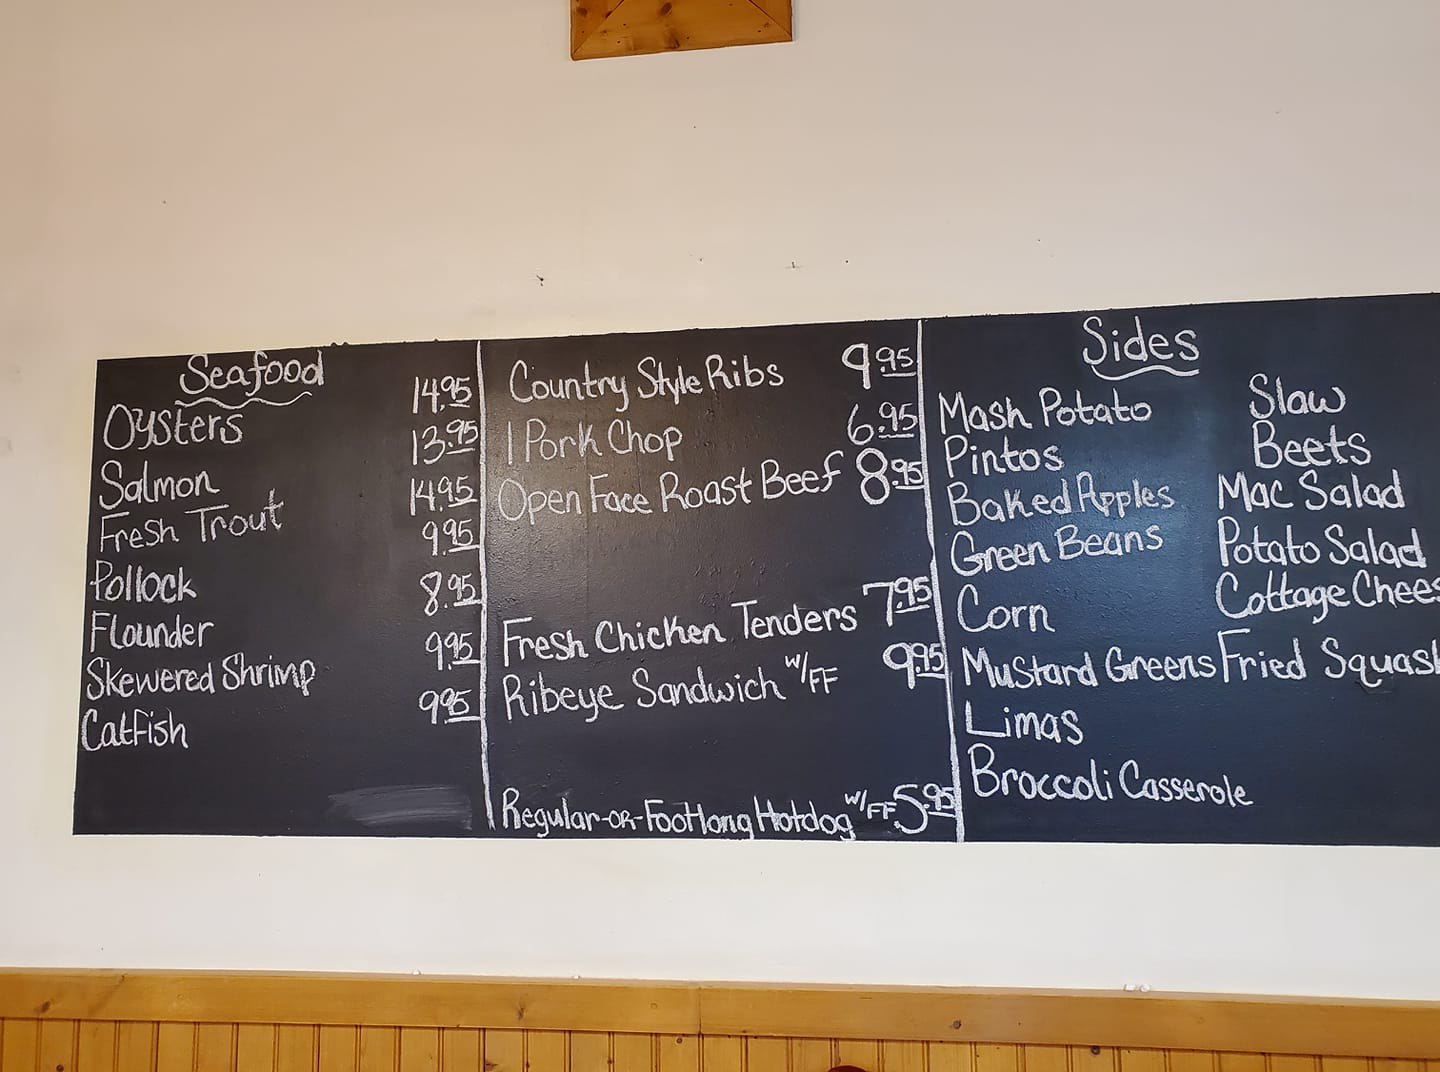 Seafood
Oysters 14.95
Salmon 13.95
Fresh Trout 14.95
Pollock 9.95
Flounder 8.95
Skewered Shrimp 9.95
Catfish 9.95
Country Style Ribs 9.95
1 Pork Chop 6.95
Open Face Roast Beef 8.95
Fresh Chicken Tenders 7.95
Ribeye Sandwich w/FF 9.95
Regular-OR-Footlong Hotdog w/FF 5.95
Sides
Mash Potato Slaw
Pintos Beets
Baked Apples Mac Salad
Green Beans Potato Salad
Corn Cottage Chees
Mustard Greens Fried Squash
Limas
Broccoli Casserole